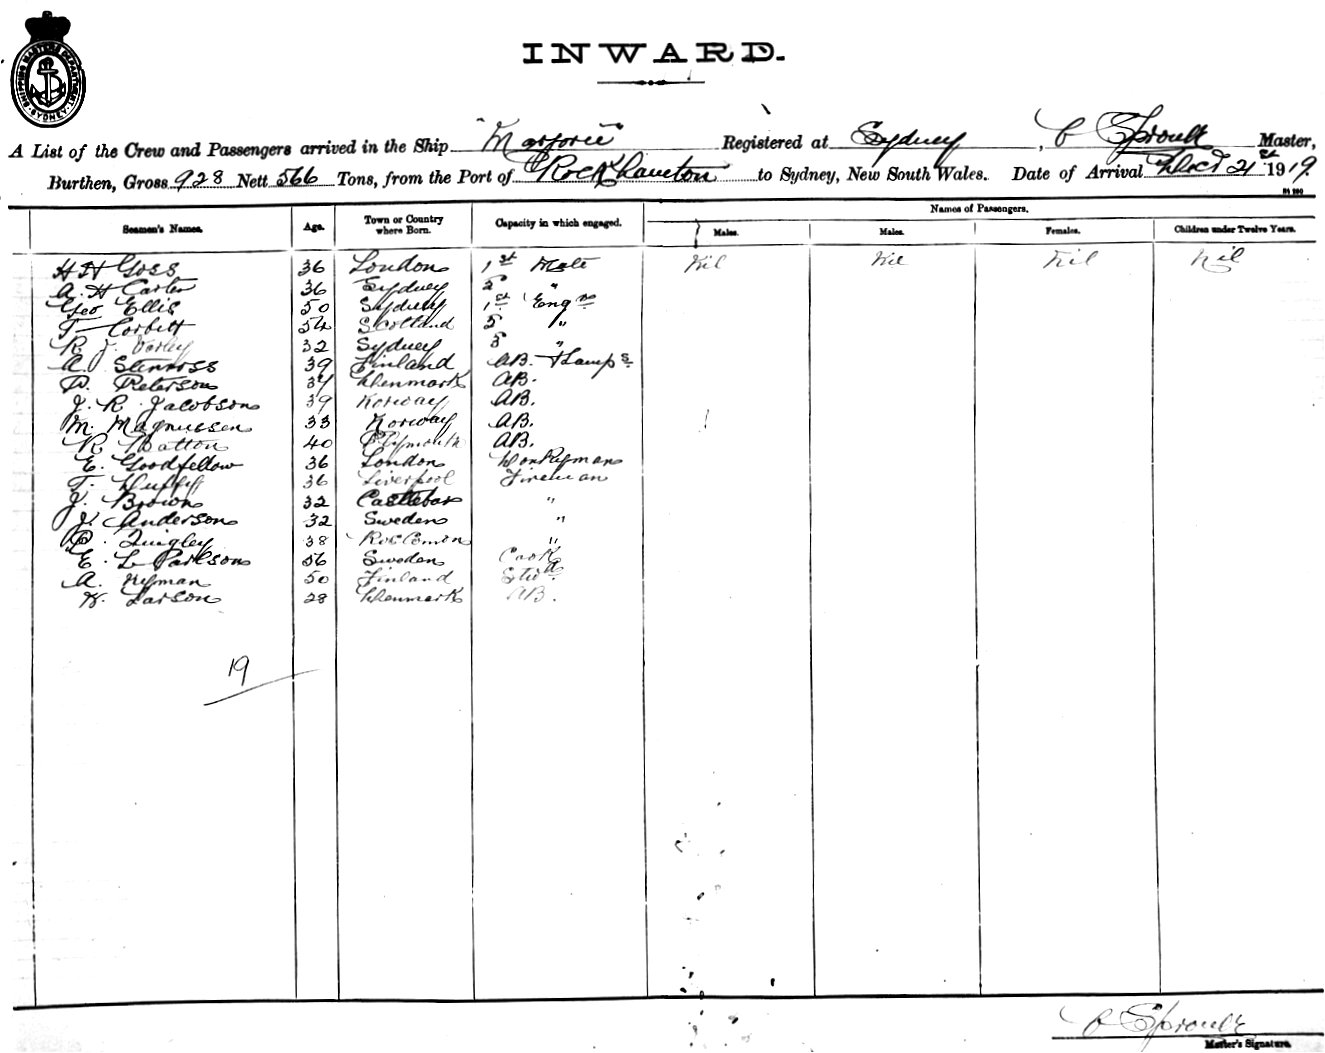 SHIPPING MASTER'S DEPARTMENT
SYDNEY
INWARD.
A List of the Crew and Passengers arrived in the Ship "Marjorie" Registered at Sydney, C Sproule Master,
Burthen, Gross 928 Nett 566 Tons, from the Port of Rockhampton to Sydney, New South Wales. Date of Arrival 21st 1919.
Names of Passengers.
Seamen's Names. Age. Town or Country where Born. Capacity in which engaged. Males. Males. Females. Children under Twelve Years.
H H Goss 36 London 1st Mate Nil Nil Nil Nil
A. H Carter 36 Sydney 2 "
Geo Ellis 50 Sydney 1st Engnr
T Corbett 54 Scotland "
R. J. Varley 32 Sydney 3 "
A. Stenross 39 Finland AB. & Lamps
P. Peterson 34 Denmark AB.
J. R. Jacobson 39 Norway AB.
M. Magnussen 33 Norway AB.
R. 40 Plymouth AB.
E. Goodfellow 36 London Donkeyman
T. Duffy 36 Liverpool Fireman
J. Brown 32 Castlebar "
J. Anderson 32 Sweden "
P. Quigley 38 "
E. L Parkson 56 Sweden Cook
A. Nyman 50 Finland Stwd
H. Larson 28 Denmark AB.
19
C Sproule
Master's Signature.